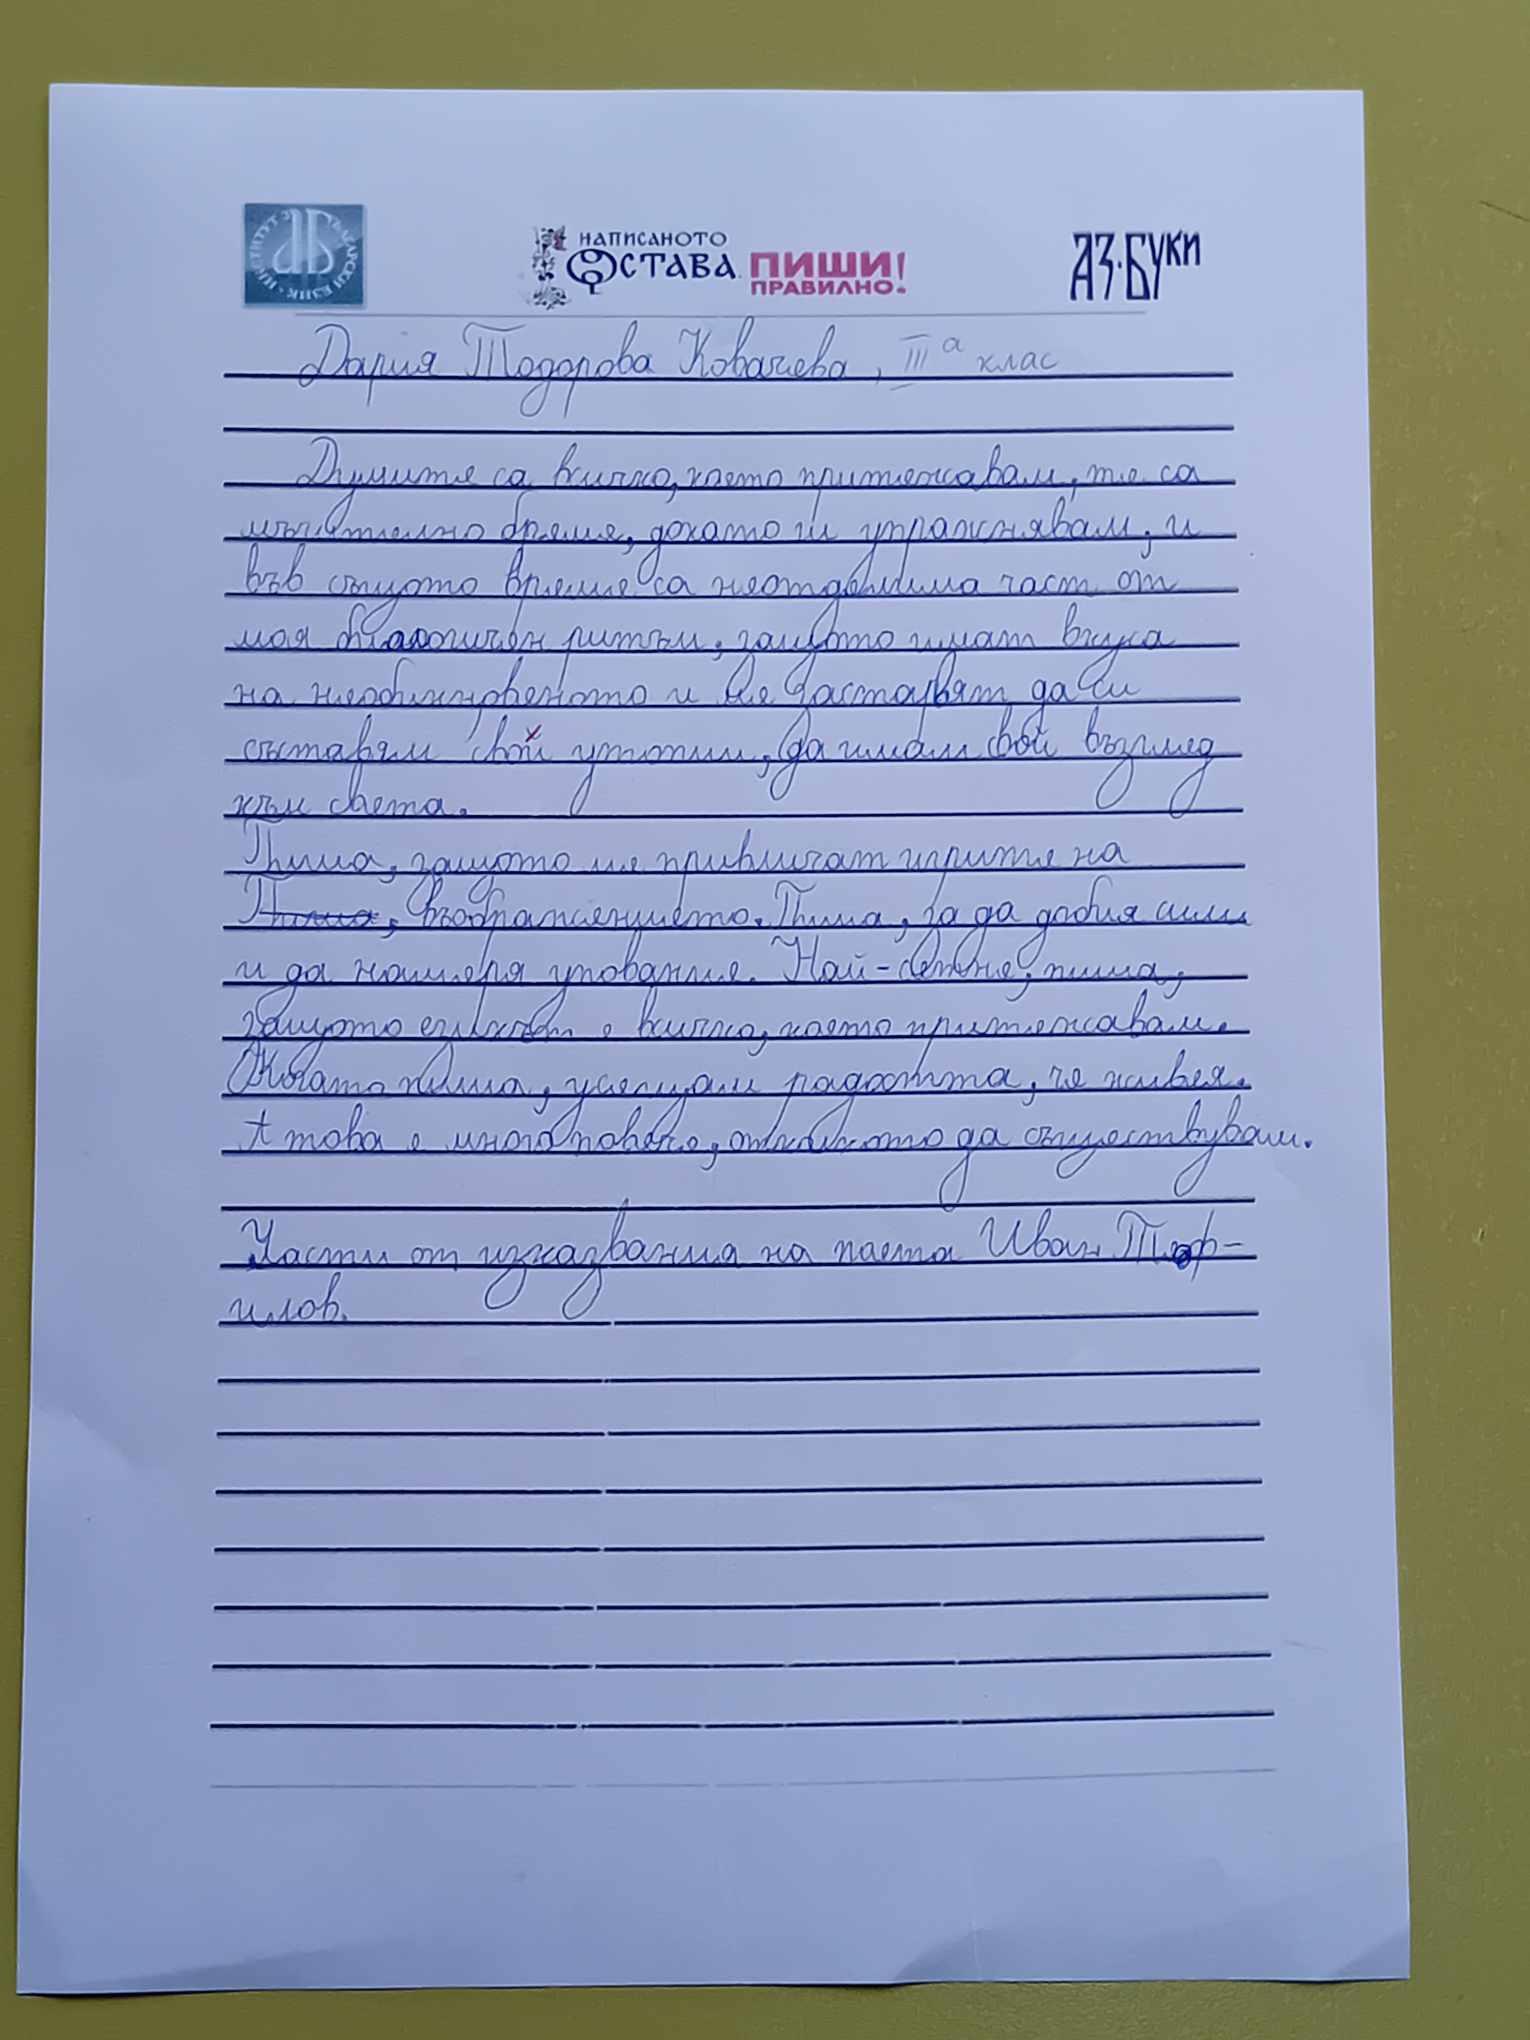 ИНСТИТУТ ЗА БЪЛГАРСКИ ЕЗИК
НАПИСАНОТО ОСТАВА. ПИШИ ПРАВИЛНО!
АЗ·БУКИ
Дария Тодорова Ковачева, III а клас
Думите са всичко, което притежавам, те са
мъчително бреме, докато ги упражнявам, и
във същото време са неотделима част от
моя биологичен ритъм, защото имат вкуса
на необикновеното и ме заставят да си
съставям свои утопии, да имам свой възглед
към света.
Пиша, защото ме привличат игрите на
Пиша, въображението. Пиша, за да добия сили
и да намеря упование. Най-сетне, пиша,
защото езикът е всичко, което притежавам.
Когато пиша, усещам радостта, че живея.
А това е много повече, отколкото да съществувам.
Части от изказвания на поета Иван Теоф-
илов.